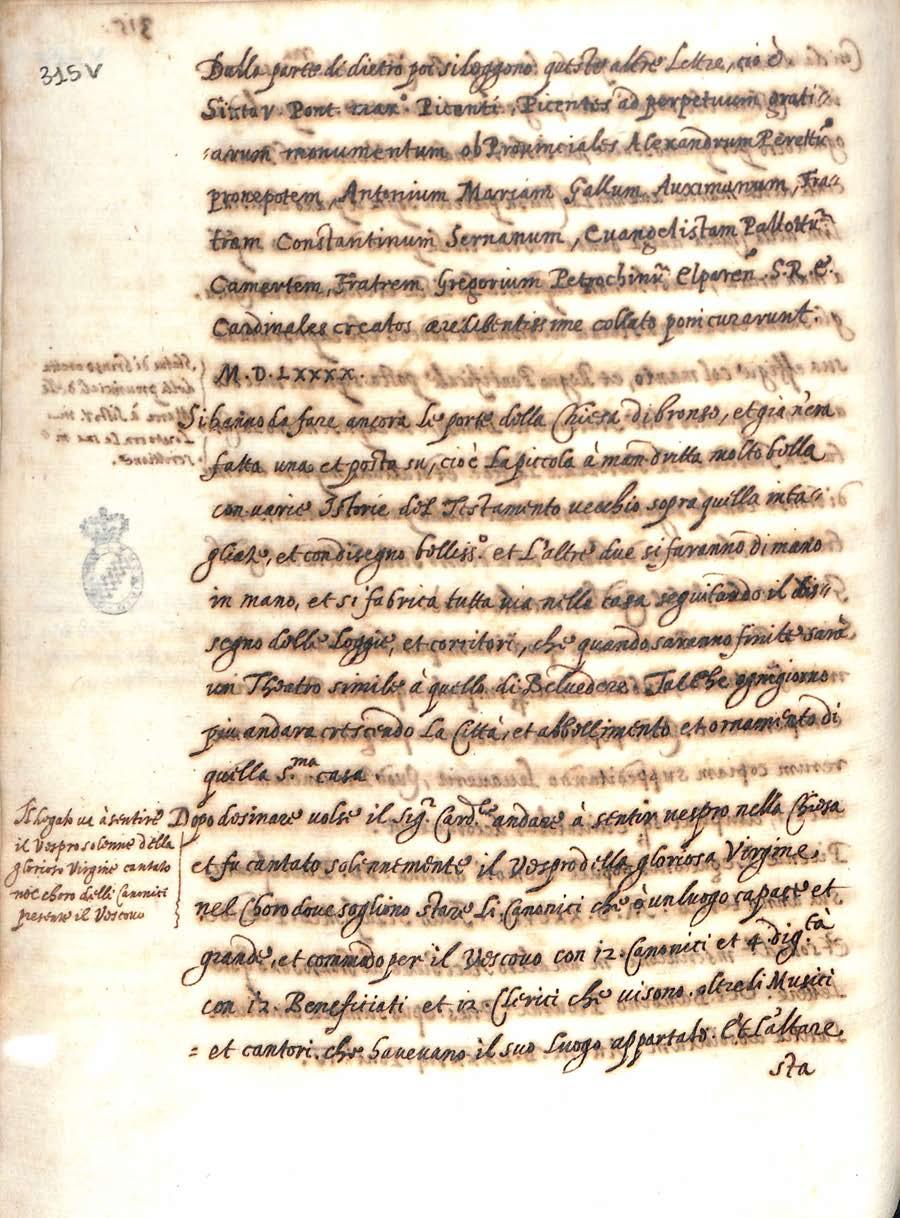 315v
Dalla parte di dietro poi si leggono queste altre Lettre, cio è
Sixto V Pont. max.° Picenti, Picentes ad perpetuum grati=
=arum monumentum ob Provinciales Alexandrum Perettũ
pronepotem, Antonium Mariam Gallum Auximanum, Fra=
trem Constantinum Sernanum, Evangelistam Pallottũ
Camertem, Fratrem Gregorium Petrochinũ Elparen̄. S.R.E.
Cardinales creatos ære libentissime collato poni curarunt.
M.D.LXXXX.
Si hanno da fare ancora le porte della Chiesa di bronso, et già n'era
fatta una et posta su, cioè La piccola à man dritta molto bella
con varie Istorie del Testamento vecchio sopra quella inta=
gliate, et con disegno belliss.° et L'altre due si faranno di mano
in mano, et si fabrica tutta via nella casa seguitando il dis=
segno delle Loggie, et corritori, che quando saranno finite sarà
un Theatro simile à quello di Belvedere. Talche ogni giorno
piu andara crescendo La Città, et abbellimento et ornamento di
quella s.ma casa.
Il Legato va à sentire
il Vespro solenne della
gloriosa Virgine cantato
nel choro delli Canonici
presente il Vescovo
Dopo desinare volse il Sig.r Card.le andare à sentir vespro nella Chiesa
et fu cantato solennemente il Vespro della gloriosa Virgine,
nel Choro dove sogliono stare Li Canonici che è un luogo capace et
grande, et commodo per il Vescovo con 12. Canonici et 4 dig.tà
con 12. Benefitiati et 12. Clerici che vi sono, oltre li Musici
= et cantori. che havevano il suo Luogo appartato. Et L'altare
sta